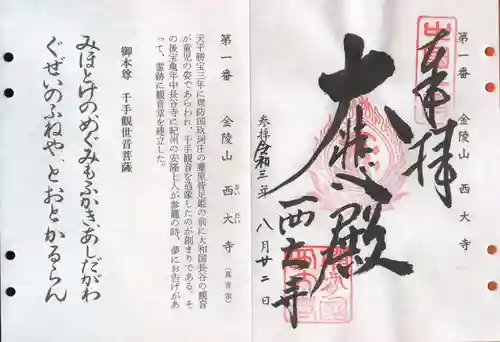 第一番 金陵山 西大寺
奉拝
大悲殿
西大寺
参拝 令和三年 八月廿二日
第一番 金陵山 西大寺（真言宗）
さい だい じ
天平勝宝三年に周防国玖珂庄の藤原皆足姫の前に大和国長谷の観音
が童児の姿であらわれ、千手観音を造像したのが創まりである。そ
の後宝亀年中長谷寺に紀州の安隆上人が参籠の時、夢にお告げがあ
って、霊跡に観音堂を建立した。
御本尊 千手観世音菩薩
みほとけのめぐみもふかき、あしだがわ
ぐぜいのふねや、とおとかるらん